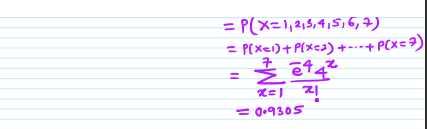 = P(X=1,2,3,4,5,6,7)
= P(X=1)+P(X=2)+---+P(X=7)
= 7∑x=1 e⁻⁴4ˣ/x!
= 0.9305